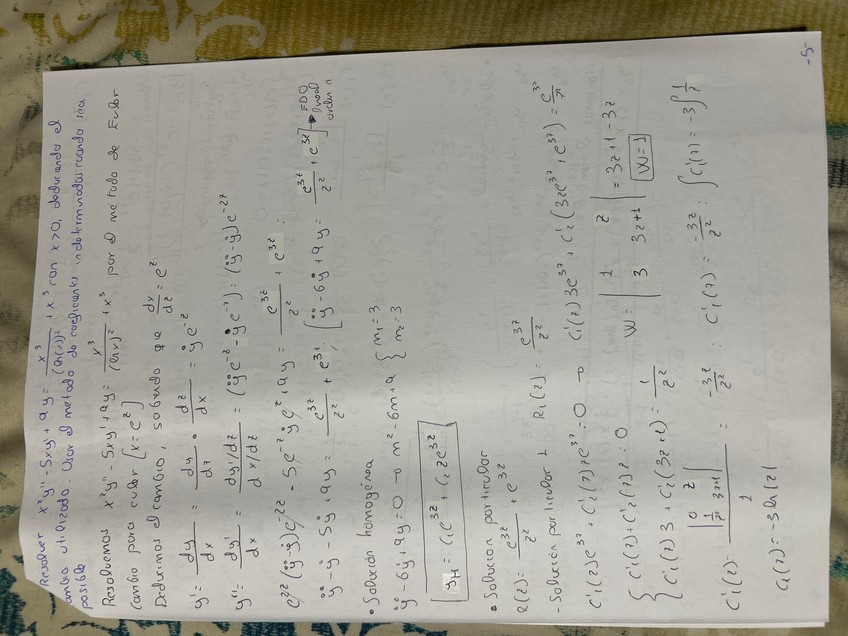 Resolver x²y'' - 5xy' + 9y = x³/(ln(x))² + x³ con x>0, deduciendo el
cambio utilizado. Usar el metodo de coeficientes indeterminados cuando sea
posible
Resolvemos x²y'' - 5xy' + 9y = x³/(lnx)² + x³ por el metodo de Euler
Cambio para euler [x = e^z]
Deducimos el cambio, sabiendo que dx/dz = e^z
y' = dy/dx = dy/dz · dz/dx = ẏe^-z
y'' = dy'/dx = dy'/dz / dx/dz = (ÿe^-z - ẏe^-z) : (ÿ-ẏ)e^-2z
e^2z(ÿ-ẏ)e^-2z - 5e^-z ẏe^z + 9y = e^3z/z² + e^3z :
ÿ - ẏ - 5ẏ + 9y = e^3z/z² + e^3z ; [ÿ - 6ẏ + 9y = e^3z/z² + e^3z] → EDO lineal orden n
• Solución homogénea
ÿ - 6ẏ + 9y = 0 → m² - 6m + 9 { m₁ = 3 m₂ = 3
y_H = C₁e^3z + C₂ze^3z
• Solución particular
R(z) = e^3z/z² + e^3z
- Solución particular 1 R₁(z) = e^3z/z²
C'₁(z)e^3z + C'₂(z)ze^3z = 0 → C'₁(z)3e^3z + C'₂(3ze^3z + e^3z) = e^3z/z²
{ C'₁(z) + C'₂(z)z = 0
C'₁(z)3 + C'₂(3z+1) = 1/z²
W = | 1 z | = 3z + 1 - 3z
| 3 3z+1 | W = 1
C'₁(z) = | 0 z | | 1/z² 3z+1 | / 1 = -3z/z² : C'₁(z) = -3z/z² : ∫C'₁(z) = -3∫1/z
C₁(z) = -3ln(z)
-5-